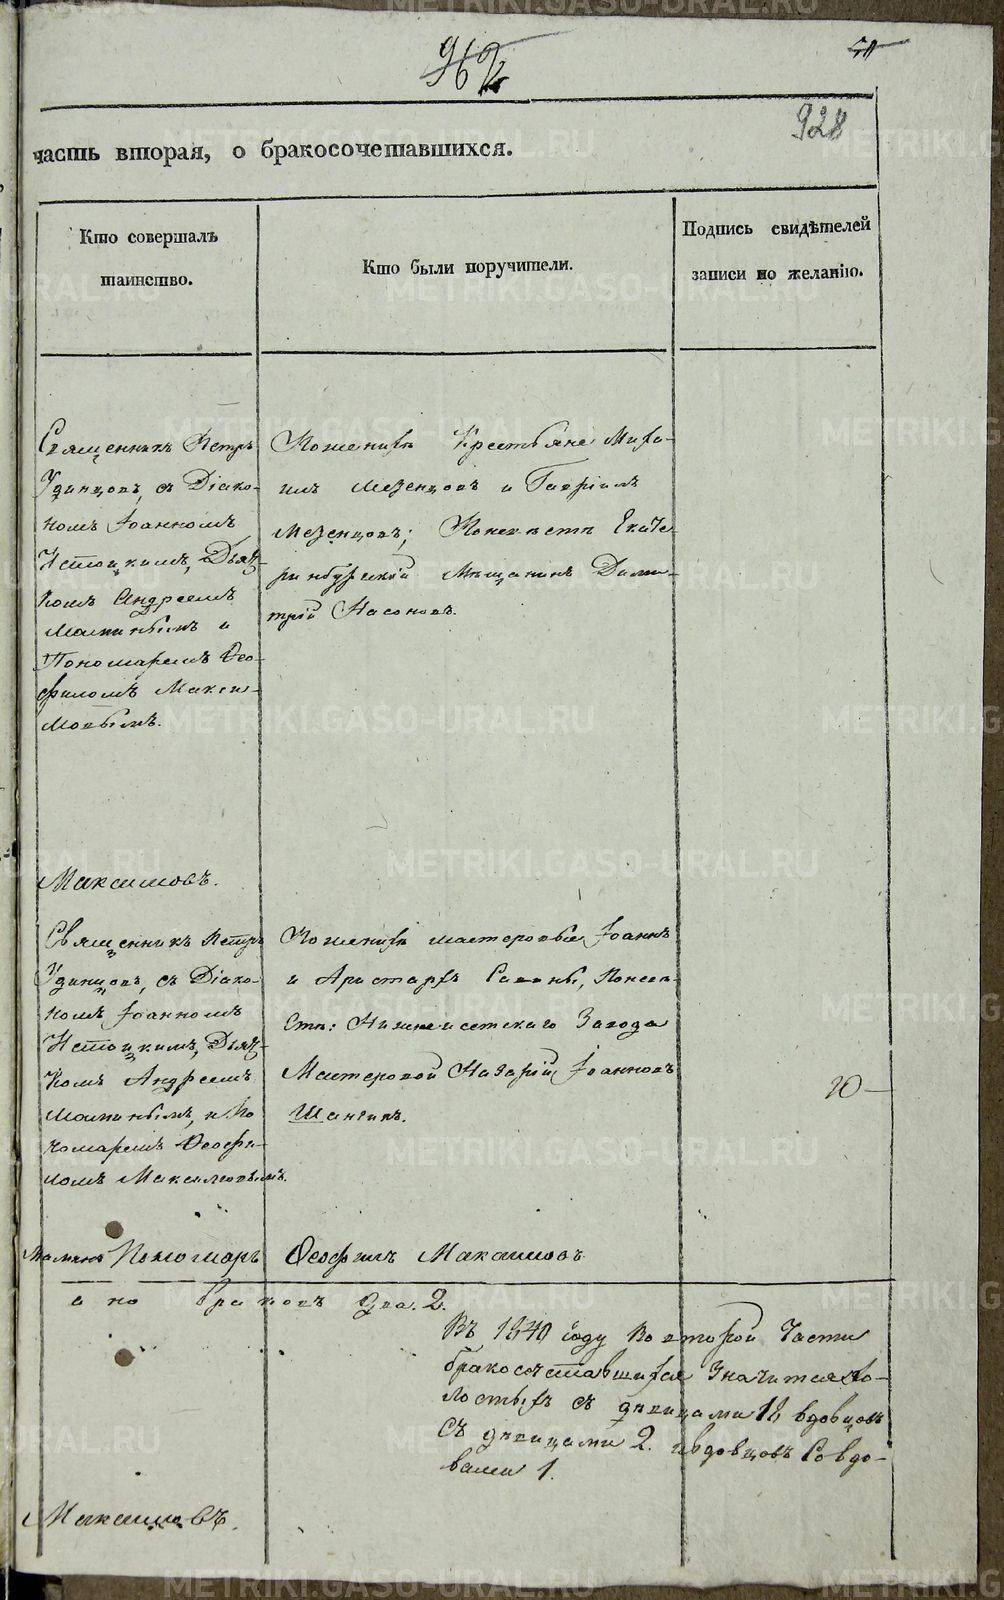 962
928
часть вторая, о бракосочетавшихся.
Кто совершалъ
таинство.
Кто были поручители.
Подпись свидѣтелей
записи по желанію.
Священникъ Петръ
Удинцовъ, съ Діако-
номъ Іоанномъ
Истоцкимъ, Дьяч-
комъ Андреемъ
Мамынымъ и
Пономаремъ Ѳео-
филомъ Макси-
мовымъ.
По женихѣ Крестьяне Миха-
илъ Мезенцовъ и Гавріилъ
Мезенцовъ; По невѣстѣ Екате
ринбургскій Мѣщанинъ Дими-
трій Насоновъ.
Максимовъ.
Священникъ Петръ
Удинцовъ, съ Діако-
номъ Іоанномъ
Истоцкимъ, Дьяч-
комъ Андреемъ
Мамынымъ, и По
номаремъ Ѳеофи-
ломъ Максимовымъ.
По женихѣ мастеровые Іоаннъ
и Аристархъ Савины, По невѣ-
стѣ: Нижнеисетскаго Завода
Мастеровой Назарій Іоанновъ
20-
Маминъ Пономарь Ѳеофилъ Максимовъ
а но браковъ два. 2.
Въ 1840 году во второй части
бракосочетавшихся значится хо-
лостыхъ съ дѣвицами 12, вдовцовъ
съ дѣвицами 2. и вдовцовъ со вдо-
вами 1.
Максимовъ.
METRIKI.GASO-URAL.RU